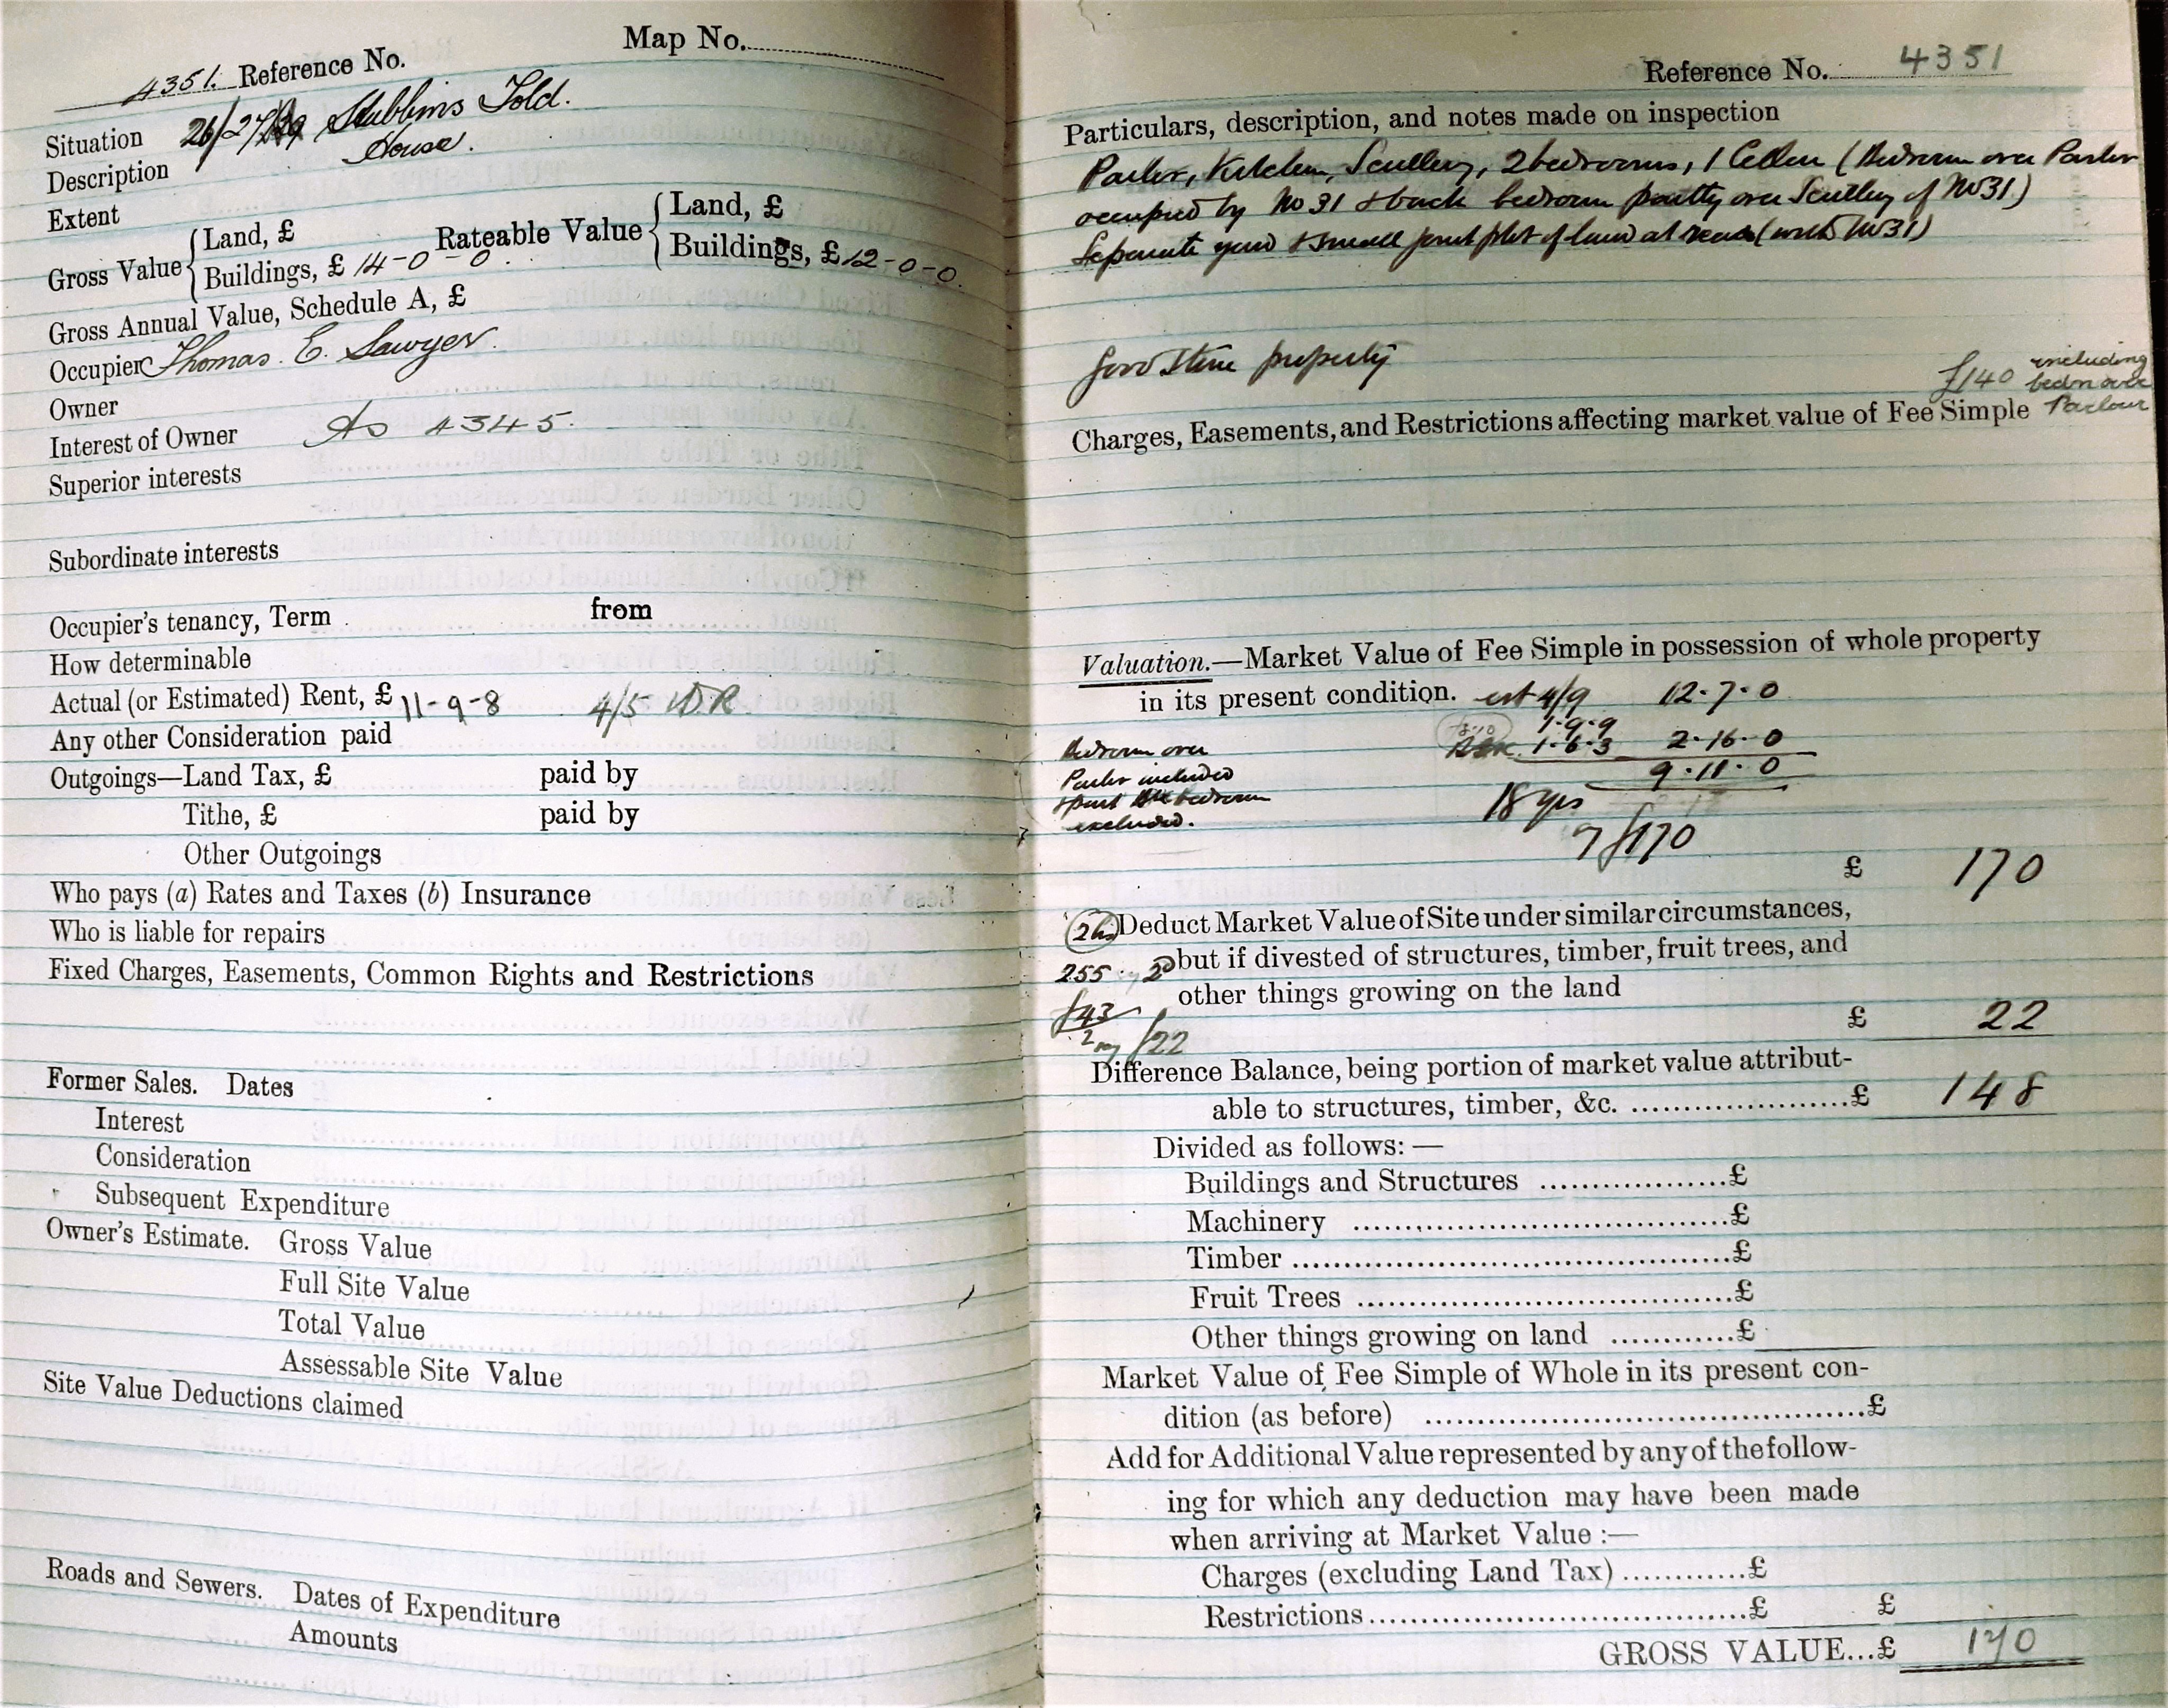 Map No.
4351. Reference No.
Situation 26/27/29 Stubbins Fold.
Description House.
Extent
Gross Value { Land, £ Rateable Value { Land, £
Buildings, £ 14-0-0. Buildings, £ 12-0-0.
Gross Annual Value, Schedule A, £
Occupier Thomas. E. Sawyer.
Owner
Interest of Owner As 4345.
Superior interests
Subordinate interests
Occupier's tenancy, Term from
How determinable
Actual (or Estimated) Rent, £ 11-9-8 4/5 W.R.
Any other Consideration paid
Outgoings—Land Tax, £ paid by
Tithe, £ paid by
Other Outgoings
Who pays (a) Rates and Taxes (b) Insurance
Who is liable for repairs
Fixed Charges, Easements, Common Rights and Restrictions
Former Sales. Dates
Interest
Consideration
Subsequent Expenditure
Owner's Estimate. Gross Value
Full Site Value
Total Value
Assessable Site Value
Site Value Deductions claimed
Roads and Sewers. Dates of Expenditure
Amounts
Reference No. 4351
Particulars, description, and notes made on inspection
Parlor, Kitchen, Scullery, 2 bedrooms, 1 Cellar (Bedroom over Parlor
occupied by No 31 & back bedroom partly over Scullery of No 31)
Separate yard & small joint plot of land at rear (with No 31)
Good Stone property
£140 including
bedrm over
Parlour
Charges, Easements, and Restrictions affecting market value of Fee Simple
Valuation.—Market Value of Fee Simple in possession of whole property
in its present condition. est 4/9 12.7.0
1.9.9
Bedroom over 1.6.3 2.16.0
Parlor included 9.11.0
& part bedroom 18 yrs
excluded.
£170
£ 170
Deduct Market Value of Site under similar circumstances,
255 2d but if divested of structures, timber, fruit trees, and
other things growing on the land
£43
2 £22
£ 22
Difference Balance, being portion of market value attribut-
able to structures, timber, &c. £ 148
Divided as follows:—
Buildings and Structures £
Machinery £
Timber £
Fruit Trees £
Other things growing on land £
Market Value of Fee Simple of Whole in its present con-
dition (as before) £
Add for Additional Value represented by any of the follow-
ing for which any deduction may have been made
when arriving at Market Value :—
Charges (excluding Land Tax) £
Restrictions £ £
GROSS VALUE...£ 170